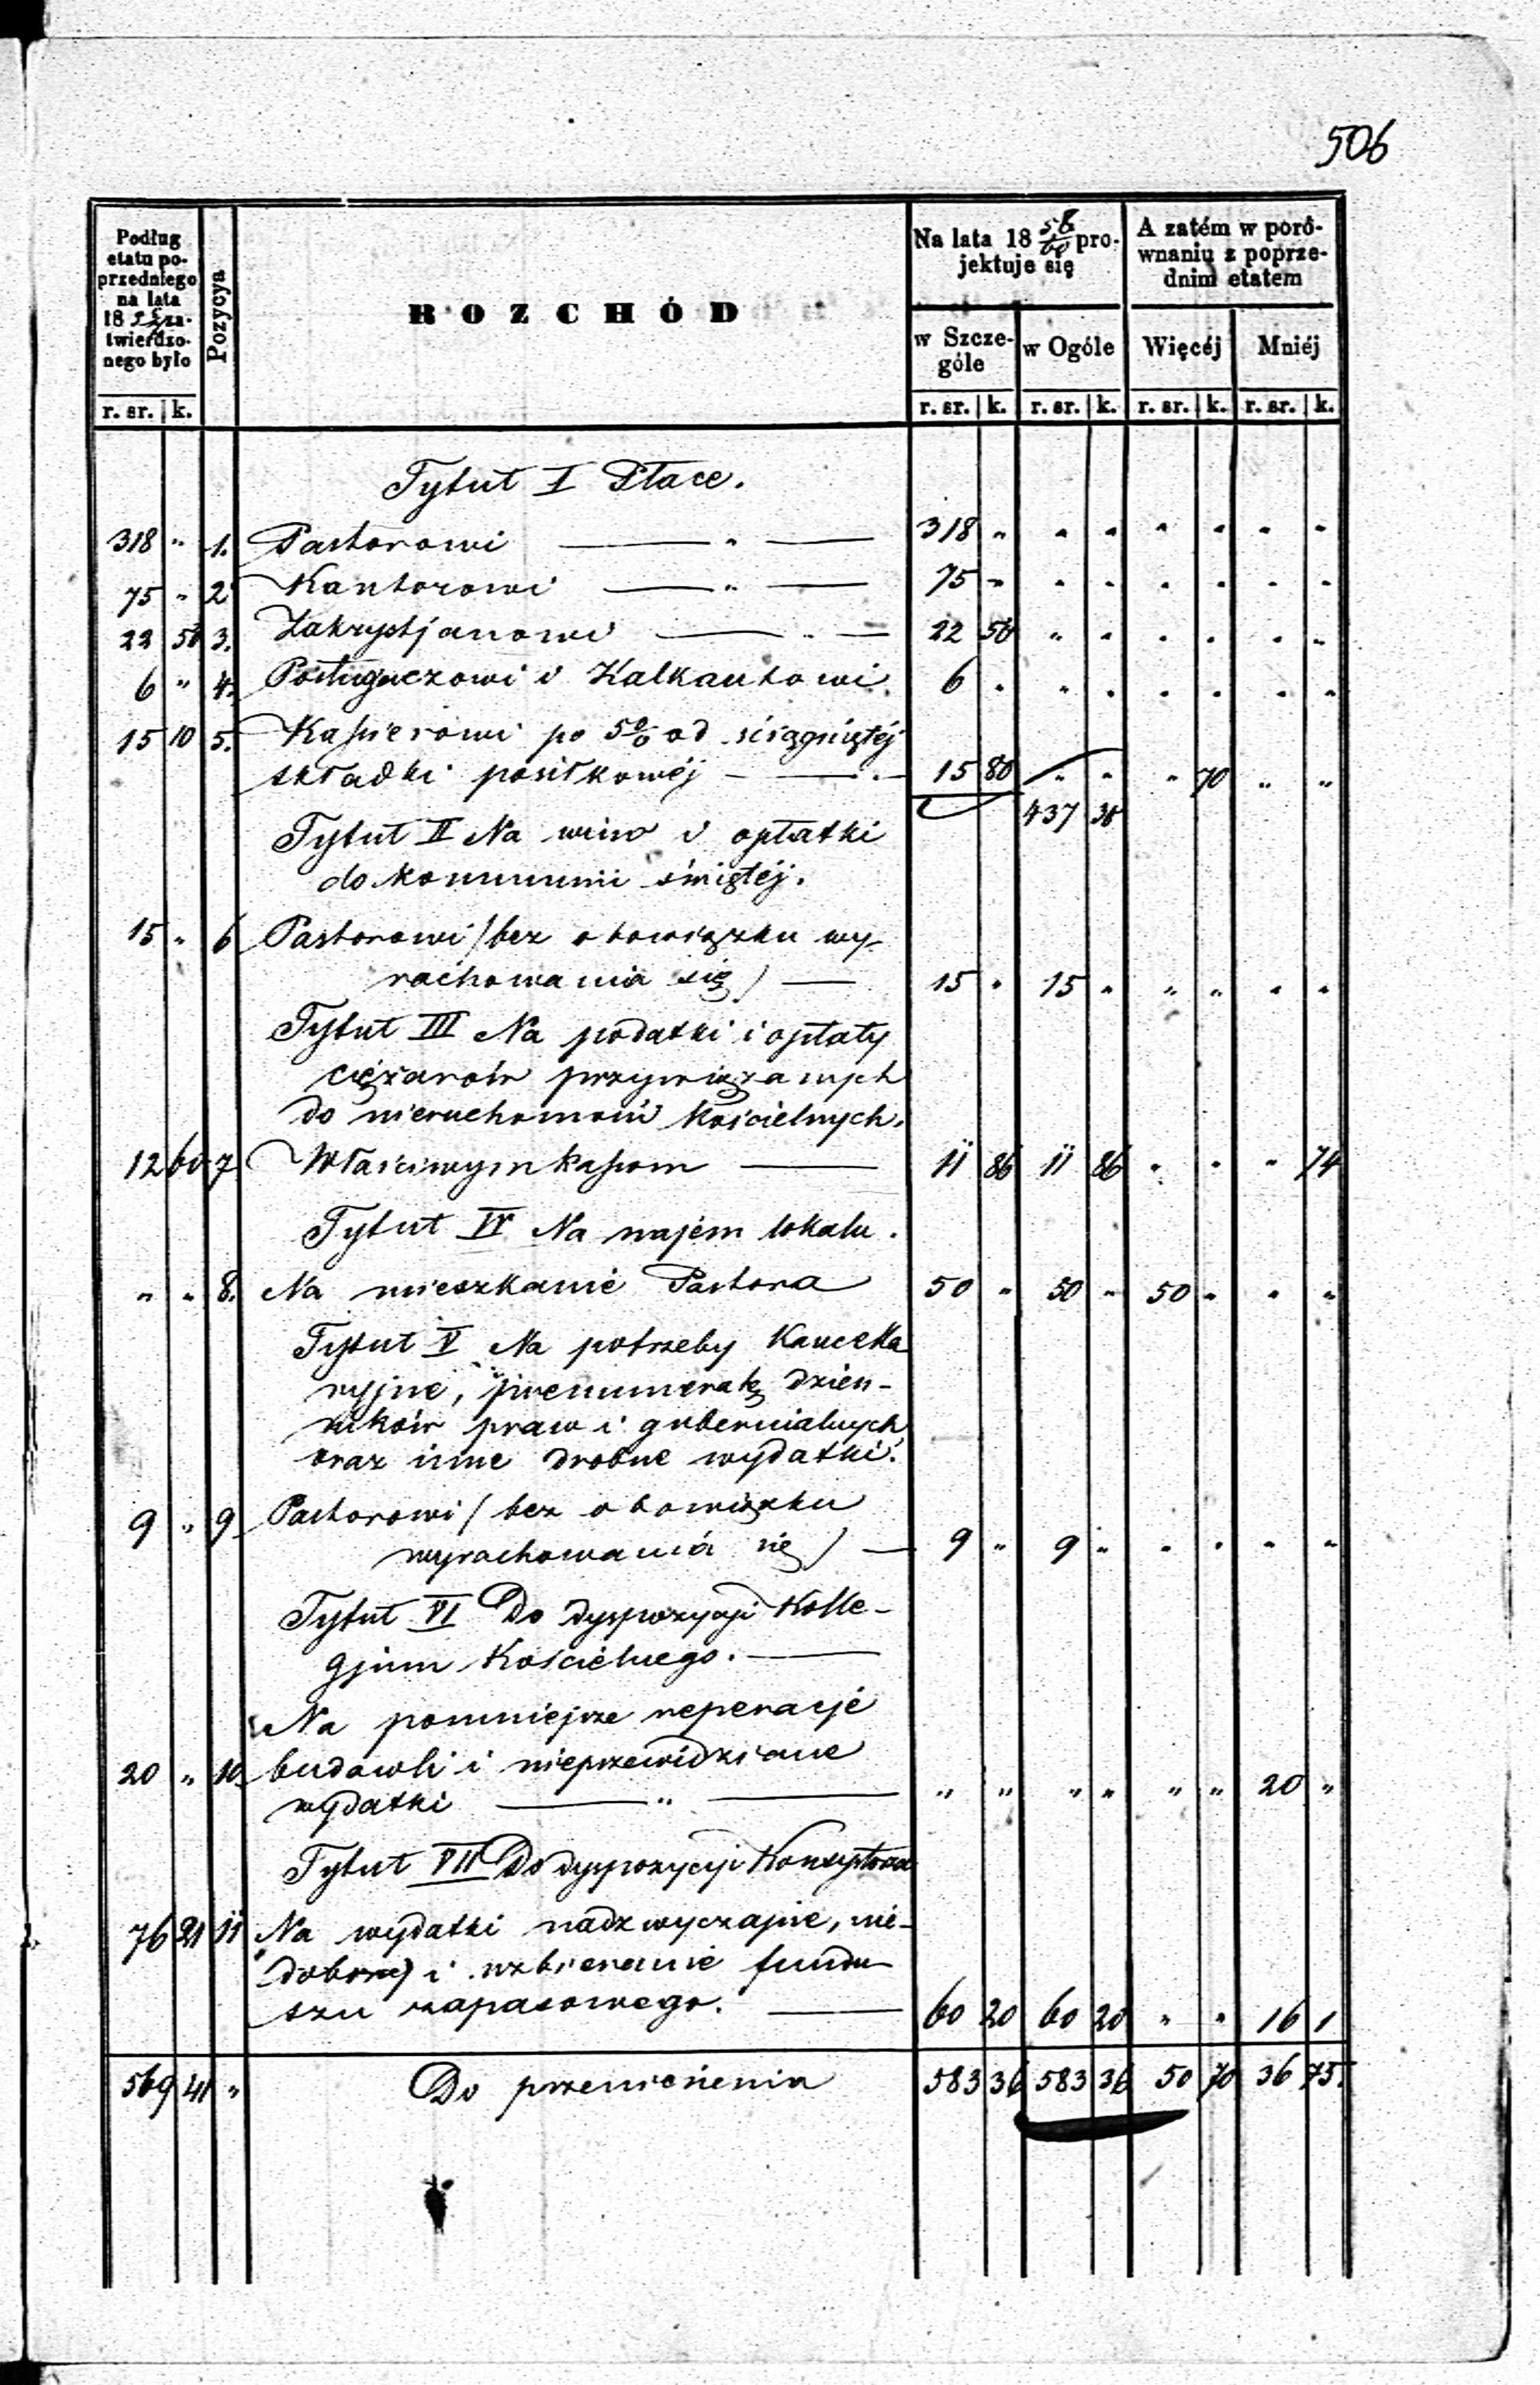 506
Podług etatu poprzedniego na lata 18 zatwierdzonego było
Pozycya
ROZCHÓD
Na lata 18 58/60 projektuje się
A zatém w porównaniu z poprzednim etatem
w Szczególe
w Ogóle
Więcéj
Mniéj
r. sr. k. r. sr. k. r. sr. k. r. sr. k. r. sr. k.
Tytuł I Płace.
318 " 1. Pastorowi — " — 318 " " " " " " "
75 " 2 Kantorowi — " — 75 " " " " " " "
22 50 3. Zakrystjanowi — " — 22 50 " " " " " "
6 " 4. Posługaczowi i Kalkantowi 6 " " " " " " "
15 10 5. Kassierowi po 5% od ściągniętéj
składki posiłkowéj — " — 15 80 " " " 70 " "
437 30
Tytuł II Na wino i opłatki
do kommunii świętéj.
15 " 6 Pastorowi / bez obowiązku wy-
rachowania się / — 15 " 15 " " " " "
Tytuł III Na podatki i opłaty
ciężarów przywiązanych
do nieruchomości kościelnych.
12 60 7 Właściwym kassom — 11 86 11 86 " " " 74
Tytuł IV Na najem lokalu.
" " 8. Na mieszkanie Pastora 50 " 50 " 50 " " "
Tytuł V Na potrzeby Kancella
ryjne, prenumeratę dzien-
ników praw i gubernialnych
oraz inne drobne wydatki.
9 " 9 Pastorowi / bez obowiązku
wyrachowania się / — 9 " 9 " " " " "
Tytuł VI Do dyspozycji Kolle-
gjum Kościelnego. —
Na pomniejsze reperacje
20 " 10 budowli i nieprzewidziane
wydatki — " — " " " " " " 20 "
Tytuł VII Do dyspozycji Konsystorza
76 21 11 Na wydatki nadzwyczajne, nie-
dobory i uzbieranie fundu-
szu zapasowego. — 60 20 60 20 " " 16 1
569 41 " Do przeniesienia 583 36 583 36 50 70 36 75.